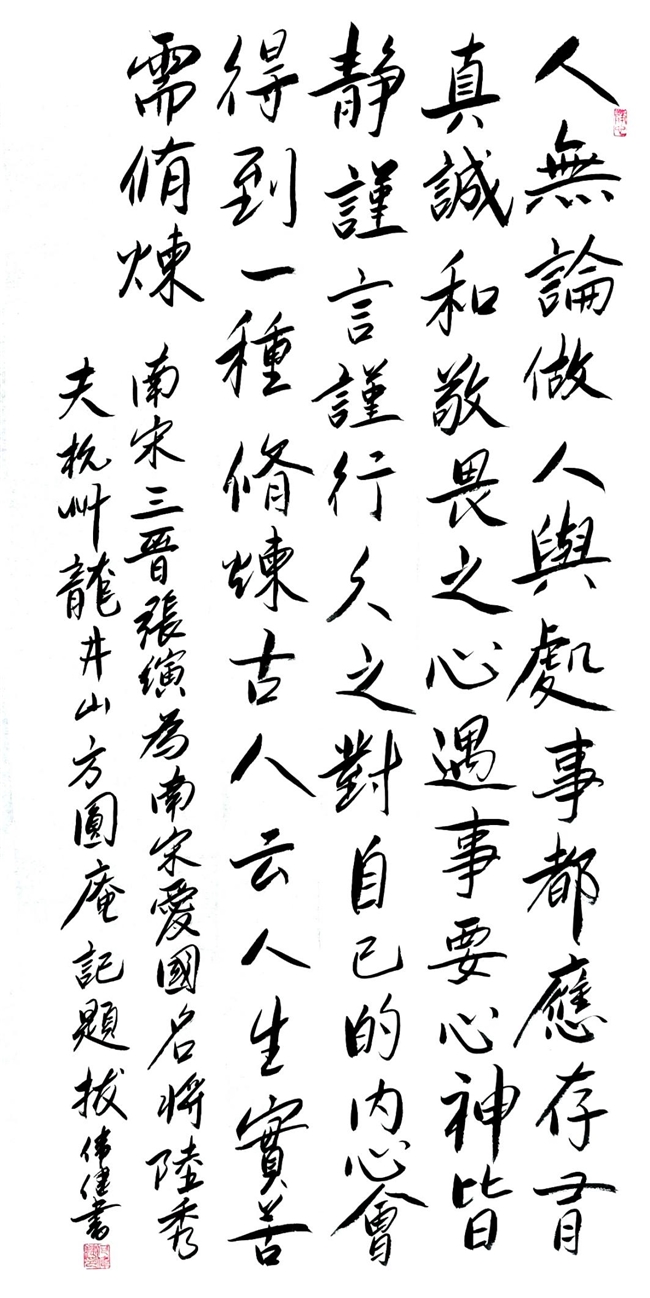 人無論做人與處事都應存有
真誠和敬畏之心遇事要心神皆
静謹言謹行久之對自己的内心會
得到一種脩煉古人云人生實苦
需脩煉
南宋三晉張縯為南宋愛國名將陸秀
夫杭州龍井山方圓庵記題拔偉健書